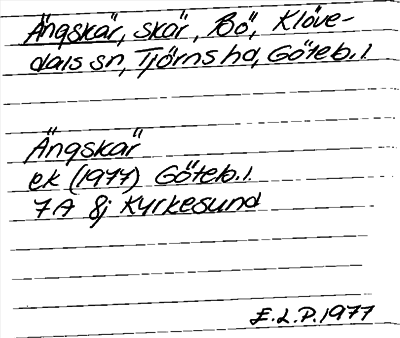 Ängskär, skär, Bö, Klöve-
dals sn, Tjörns hd, Göteb. l.
Ängskär
ek (1977) Göteb. l.
7A 8j Kyrkesund
E.L.P. 1977